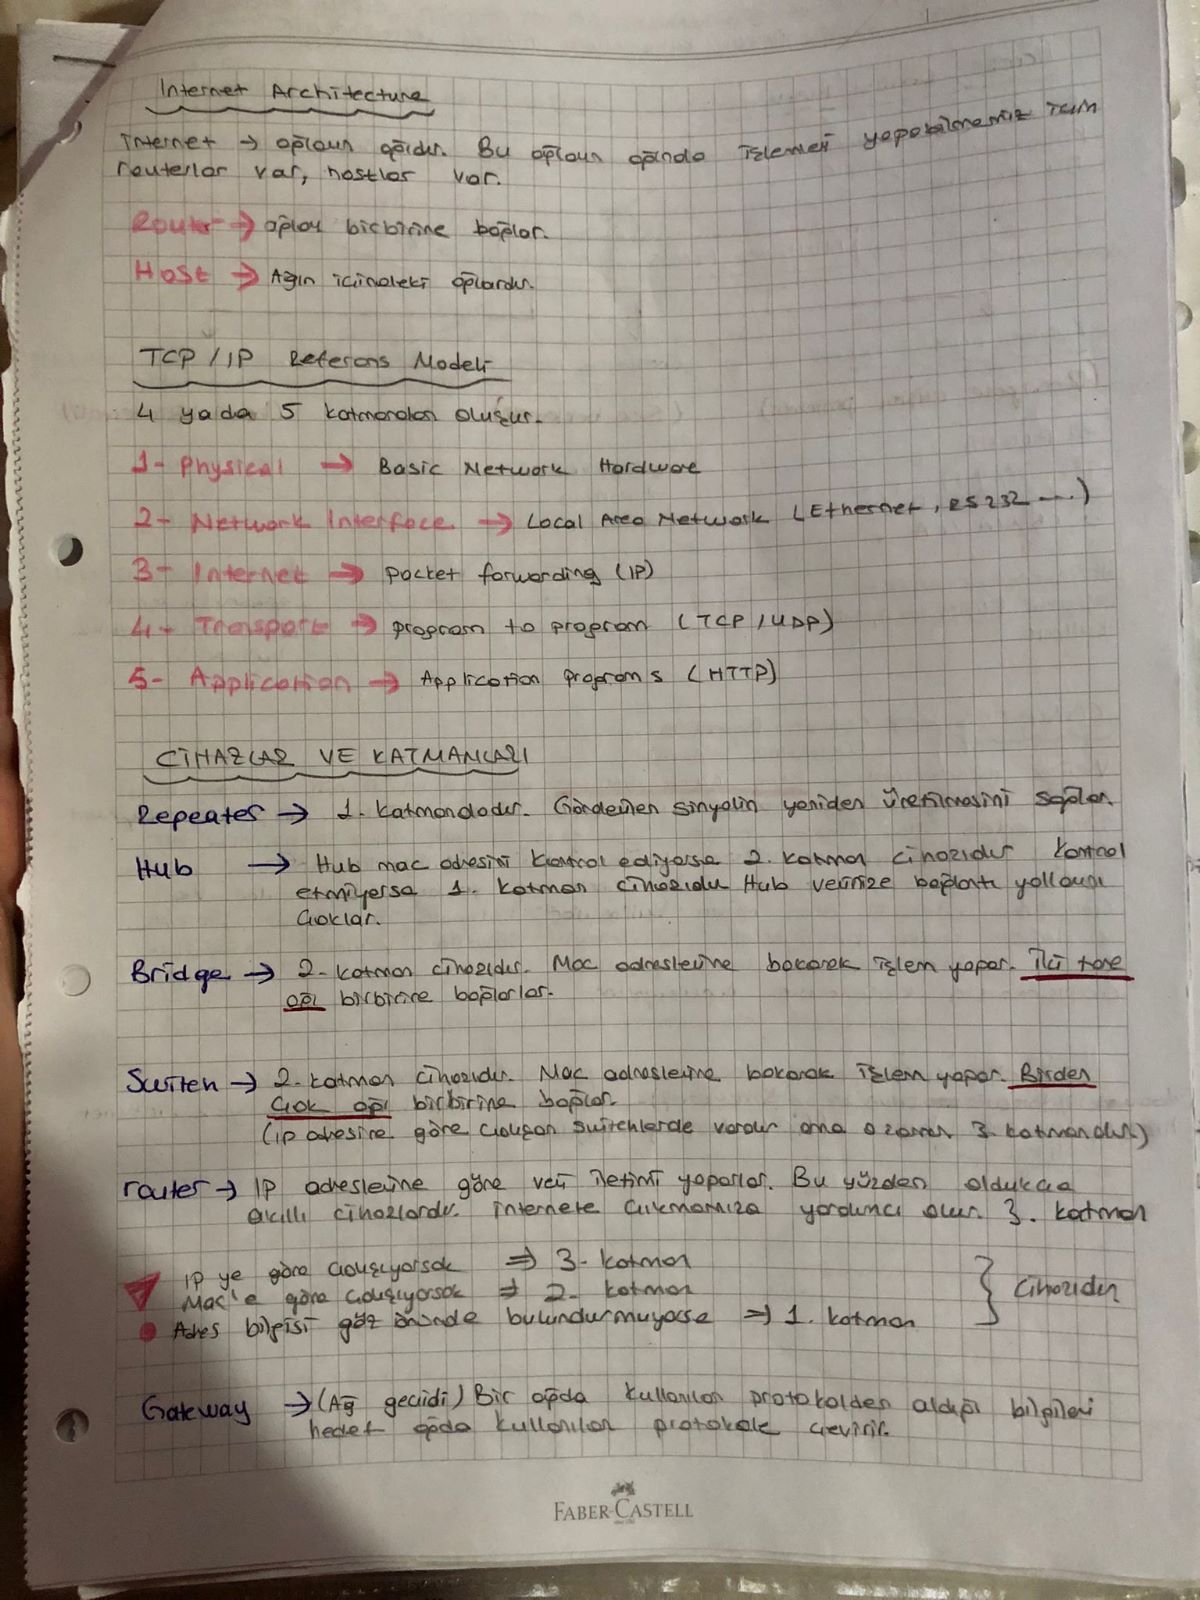 Internet Architecture
İnternet → ağların ağıdır. Bu ağların ağında işlemleri yapabilmemiz için
routerlar var, hostlar var.
Router → ağları birbirine bağlar.
Host → Ağın içindeki ağlardır.
TCP / IP Referans Modeli
4 yada 5 katmandan oluşur.
1- Physical → Basic Network Hardware
2- Network Interface → Local Area Network (Ethernet, RS232 ....)
3- Internet → packet forwarding (IP)
4- Transport → program to program (TCP / UDP)
5- Application → Application programs (HTTP)
CİHAZLAR VE KATMANLARI
Repeater → 1. katmandadır. Gönderilen sinyalin yeniden üretilmesini sağlar.
Hub → Hub mac adresini kontrol ediyorsa 2. katman cihazıdır kontrol
etmiyorsa 1. katman cihazıdır Hub verimize bağlantı yollarını
çoklar.
Bridge → 2. katman cihazıdır. Mac adreslerine bakarak işlem yapar. İki tane
ağı birbirine bağlarlar.
Switch → 2. katman cihazıdır. Mac adreslerine bakarak işlem yapar. Birden
çok ağı birbirine bağlar.
(ip adresine göre çalışan switchlerde vardır ama o zaman 3. katmandır.)
router → IP adreslerine göre veri iletimi yaparlar. Bu yüzden oldukça
akıllı cihazlardır. internete çıkmamıza yardımcı olur. 3. katman
IP ye göre çalışıyorsak ⇒ 3. katman
Mac'e göre çalışıyorsak ⇒ 2. katman } cihazıdır
Adres bilgisi göz önünde bulundurmuyorsa ⇒ 1. katman
Gateway → (Ağ geçidi) Bir ağda kullanılan protokolden aldığı bilgileri
hedef ağda kullanılan protokole çevirir.
FABER-CASTELL